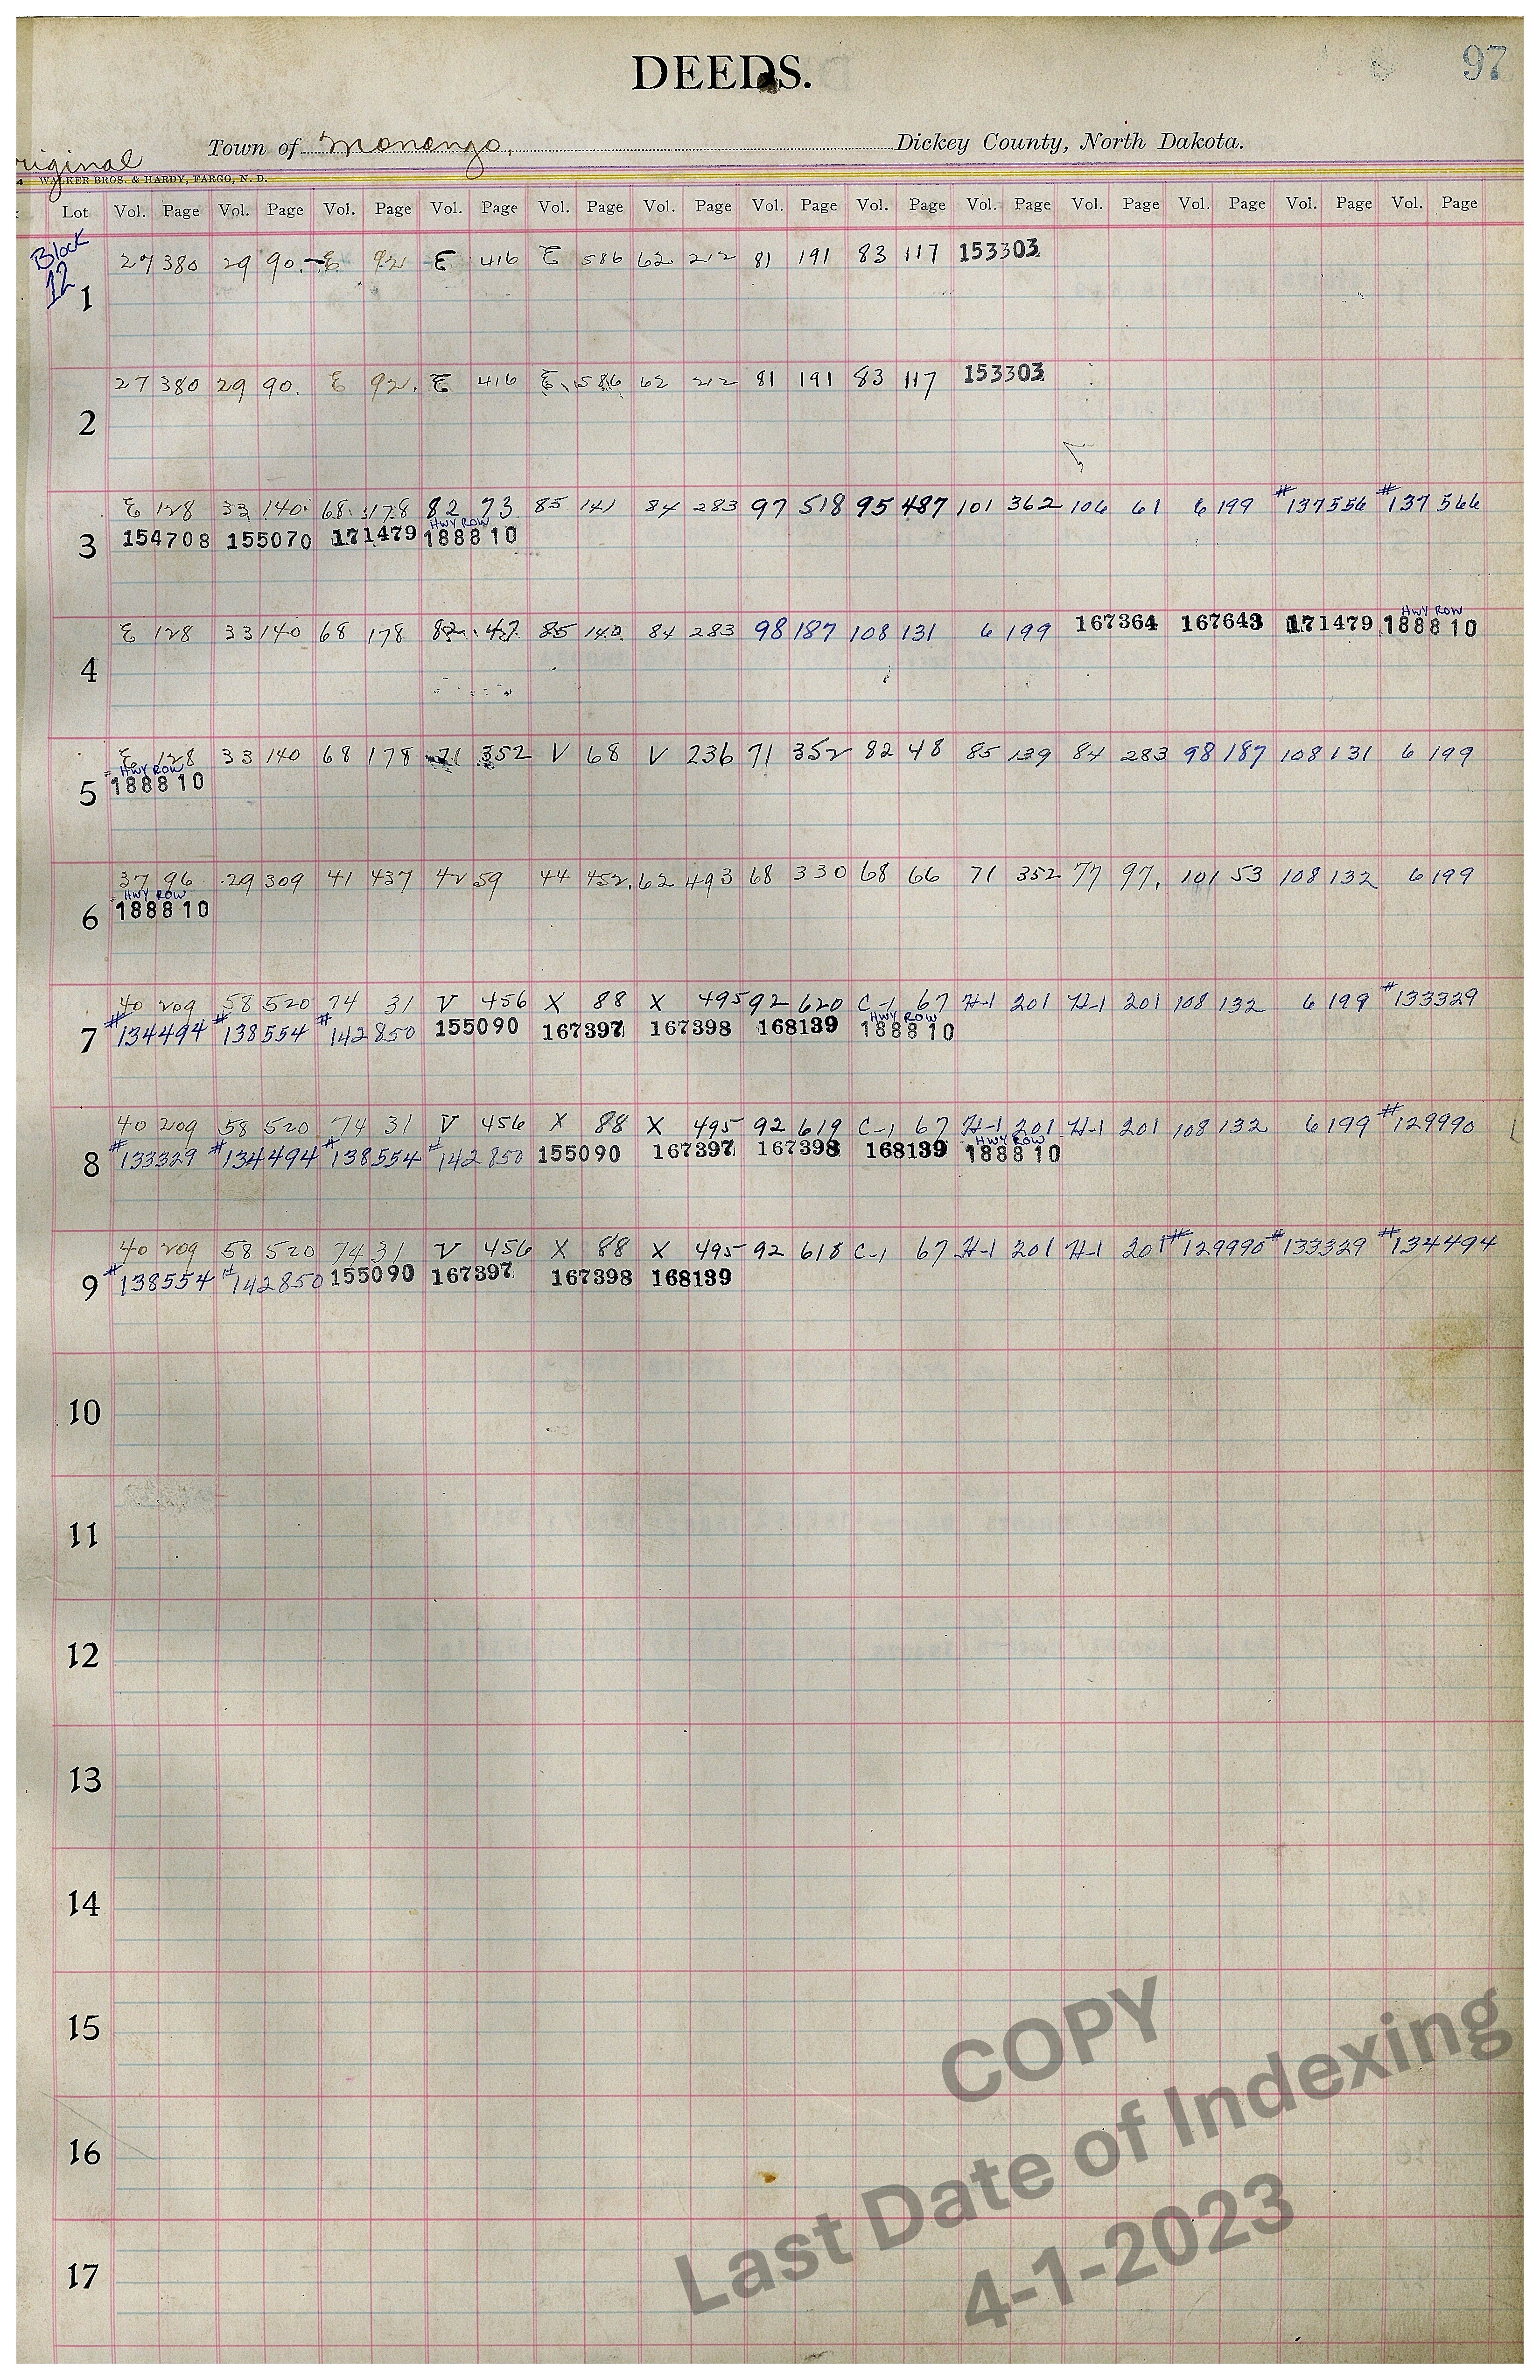 97
DEEDS.
Town of Monango, Dickey County, North Dakota.
riginal
4 WALKER BROS. & HARDY, FARGO, N. D.
Lot Vol. Page Vol. Page Vol. Page Vol. Page Vol. Page Vol. Page Vol. Page Vol. Page Vol. Page Vol. Page Vol. Page Vol. Page Vol. Page
Block
12
27 380 29 90. E 92 E 416 E 586 62 212 81 191 83 117 153303
1
27 380 29 90. E 92. E 416 E 586 62 212 81 191 83 117 153303
2
E 128 33 140 68 178 82 73 85 141 84 283 97 518 95 487 101 362 106 61 6 199 #137556 #137566
HWY ROW
3 154708 155070 171479 188810
HWY ROW
E 128 33 140 68 178 82 47 85 140 84 283 98 187 108 131 6 199 167364 167643 171479 188810
4
E 128 33 140 68 178 71 352 V 68 V 236 71 352 82 48 85 139 84 283 98 187 108 131 6 199
HWY ROW
5 188810
37 96 29 309 41 437 42 59 44 452. 62 493 68 330 68 66 71 352 77 97. 101 53 108 132 6 199
HWY ROW
6 188810
40 209 58 520 74 31 V 456 X 88 X 495 92 620 C-1 67 H-1 201 H-1 201 108 132 6 199 #133329
HWY ROW
7 #134494 #138554 #142850 155090 167397 167398 168139 188810
40 209 58 520 74 31 V 456 X 88 X 495 92 619 C-1 67 H-1 201 H-1 201 108 132 6 199 #129990
HWY ROW
8 #133329 #134494 #138554 #142850 155090 167397 167398 168139 188810
40 209 58 520 74 31 V 456 X 88 X 495 92 618 C-1 67 H-1 201 H-1 201 #129990 #133329 #134494
9 #138554 #142850 155090 167397 167398 168139
10
11
12
13
14
15
16
17
COPY
Last Date of Indexing
4-1-2023